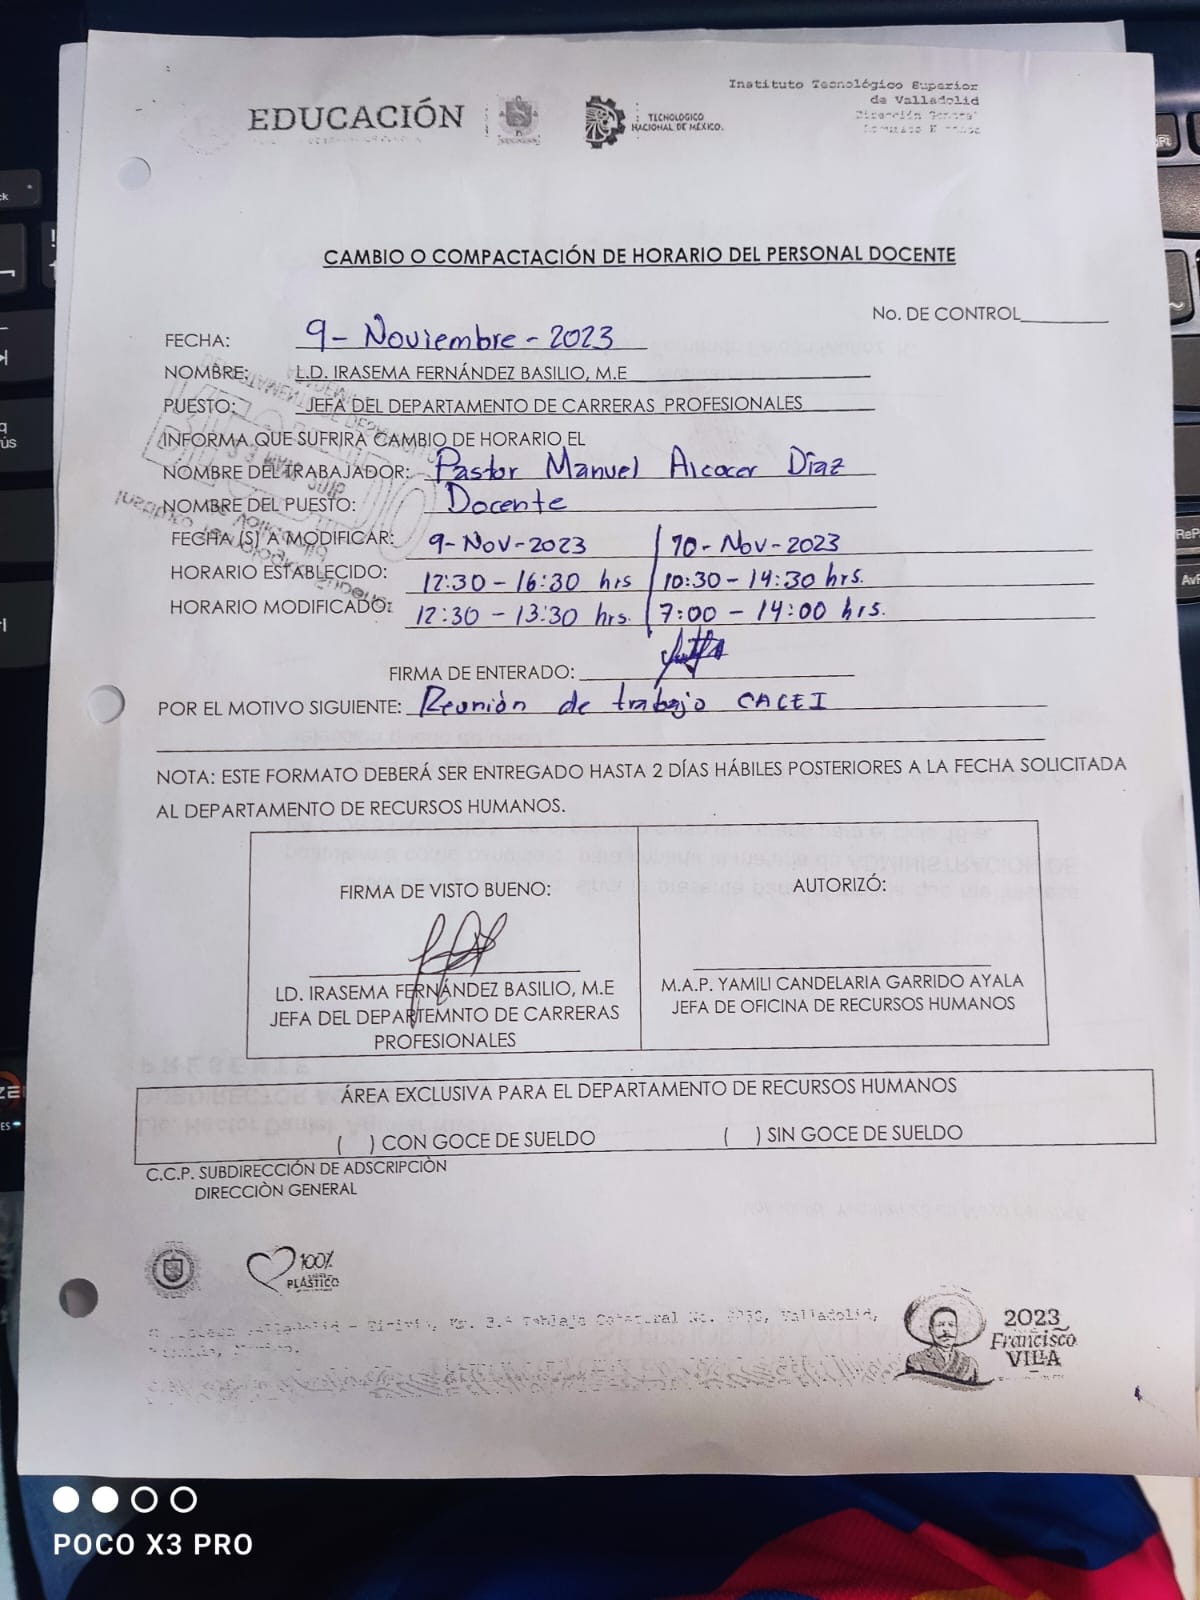 EDUCACIÓN
TECNOLÓGICO
NACIONAL DE MÉXICO.
Instituto Tecnológico Superior
de Valladolid
Dirección General
CAMBIO O COMPACTACIÓN DE HORARIO DEL PERSONAL DOCENTE
No. DE CONTROL
FECHA: 9- Noviembre - 2023
NOMBRE: L.D. IRASEMA FERNÁNDEZ BASILIO, M.E
PUESTO: JEFA DEL DEPARTAMENTO DE CARRERAS PROFESIONALES
INFORMA QUE SUFRIRA CAMBIO DE HORARIO EL
NOMBRE DEL TRABAJADOR: Pastor Manuel Alcocer Díaz
NOMBRE DEL PUESTO: Docente
FECHA (S) A MODIFICAR: 9-Nov-2023 | 10-Nov-2023
HORARIO ESTABLECIDO: 12:30 - 16:30 hrs | 10:30 - 14:30 hrs.
HORARIO MODIFICADO: 12:30 - 13:30 hrs. | 7:00 - 14:00 hrs.
FIRMA DE ENTERADO:
POR EL MOTIVO SIGUIENTE: Reunión de trabajo CACEI
NOTA: ESTE FORMATO DEBERÁ SER ENTREGADO HASTA 2 DÍAS HÁBILES POSTERIORES A LA FECHA SOLICITADA
AL DEPARTAMENTO DE RECURSOS HUMANOS.
FIRMA DE VISTO BUENO:
LD. IRASEMA FERNÁNDEZ BASILIO, M.E
JEFA DEL DEPARTEMNTO DE CARRERAS
PROFESIONALES
AUTORIZÓ:
M.A.P. YAMILI CANDELARIA GARRIDO AYALA
JEFA DE OFICINA DE RECURSOS HUMANOS
ÁREA EXCLUSIVA PARA EL DEPARTAMENTO DE RECURSOS HUMANOS
( ) CON GOCE DE SUELDO ( ) SIN GOCE DE SUELDO
C.C.P. SUBDIRECCIÓN DE ADSCRIPCIÒN
DIRECCIÒN GENERAL
100%
PLÁSTICO
Valladolid,
2023
Francisco
VILLA
POCO X3 PRO